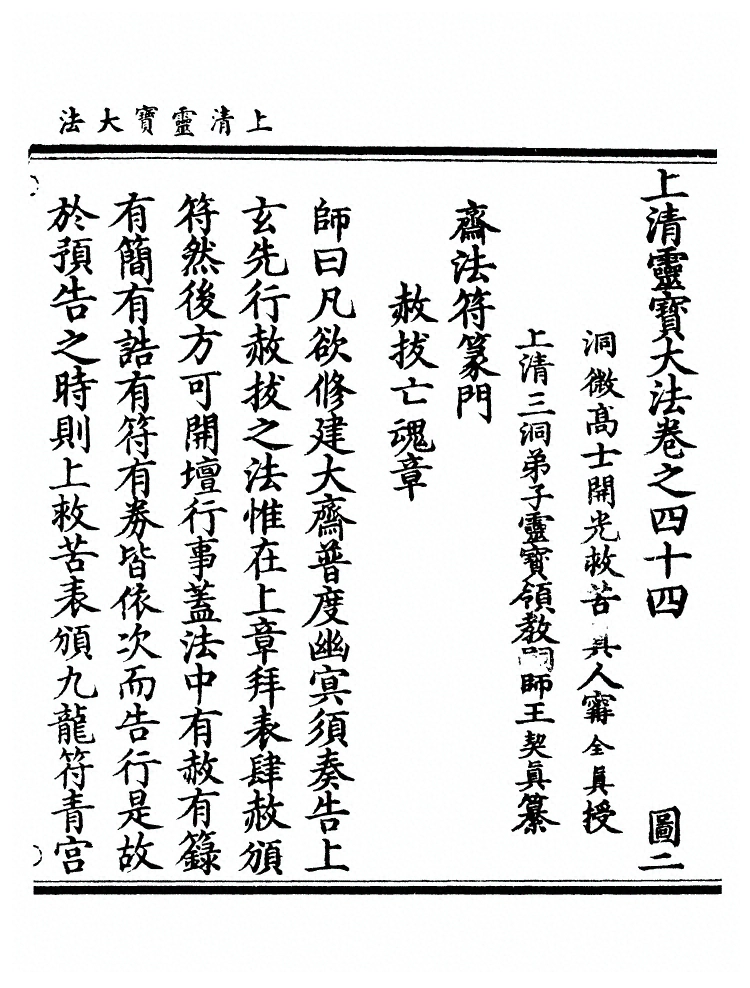 上清靈寶大法
上清靈寶大法卷之四十四　圖二
洞微高士開光救苦真人甯全眞授
上清三洞弟子靈寶領教嗣師王契眞纂
齋法符篆門
赦拔亡魂章
師曰凡欲修建大齋普度幽冥須奏告上
玄先行赦拔之法惟在上章拜表肆赦頒
符然後方可開壇行事蓋法中有赦有籙
有簡有誥有符有券皆依次而告行是故
於預告之時則上救苦表頒九龍符青宮